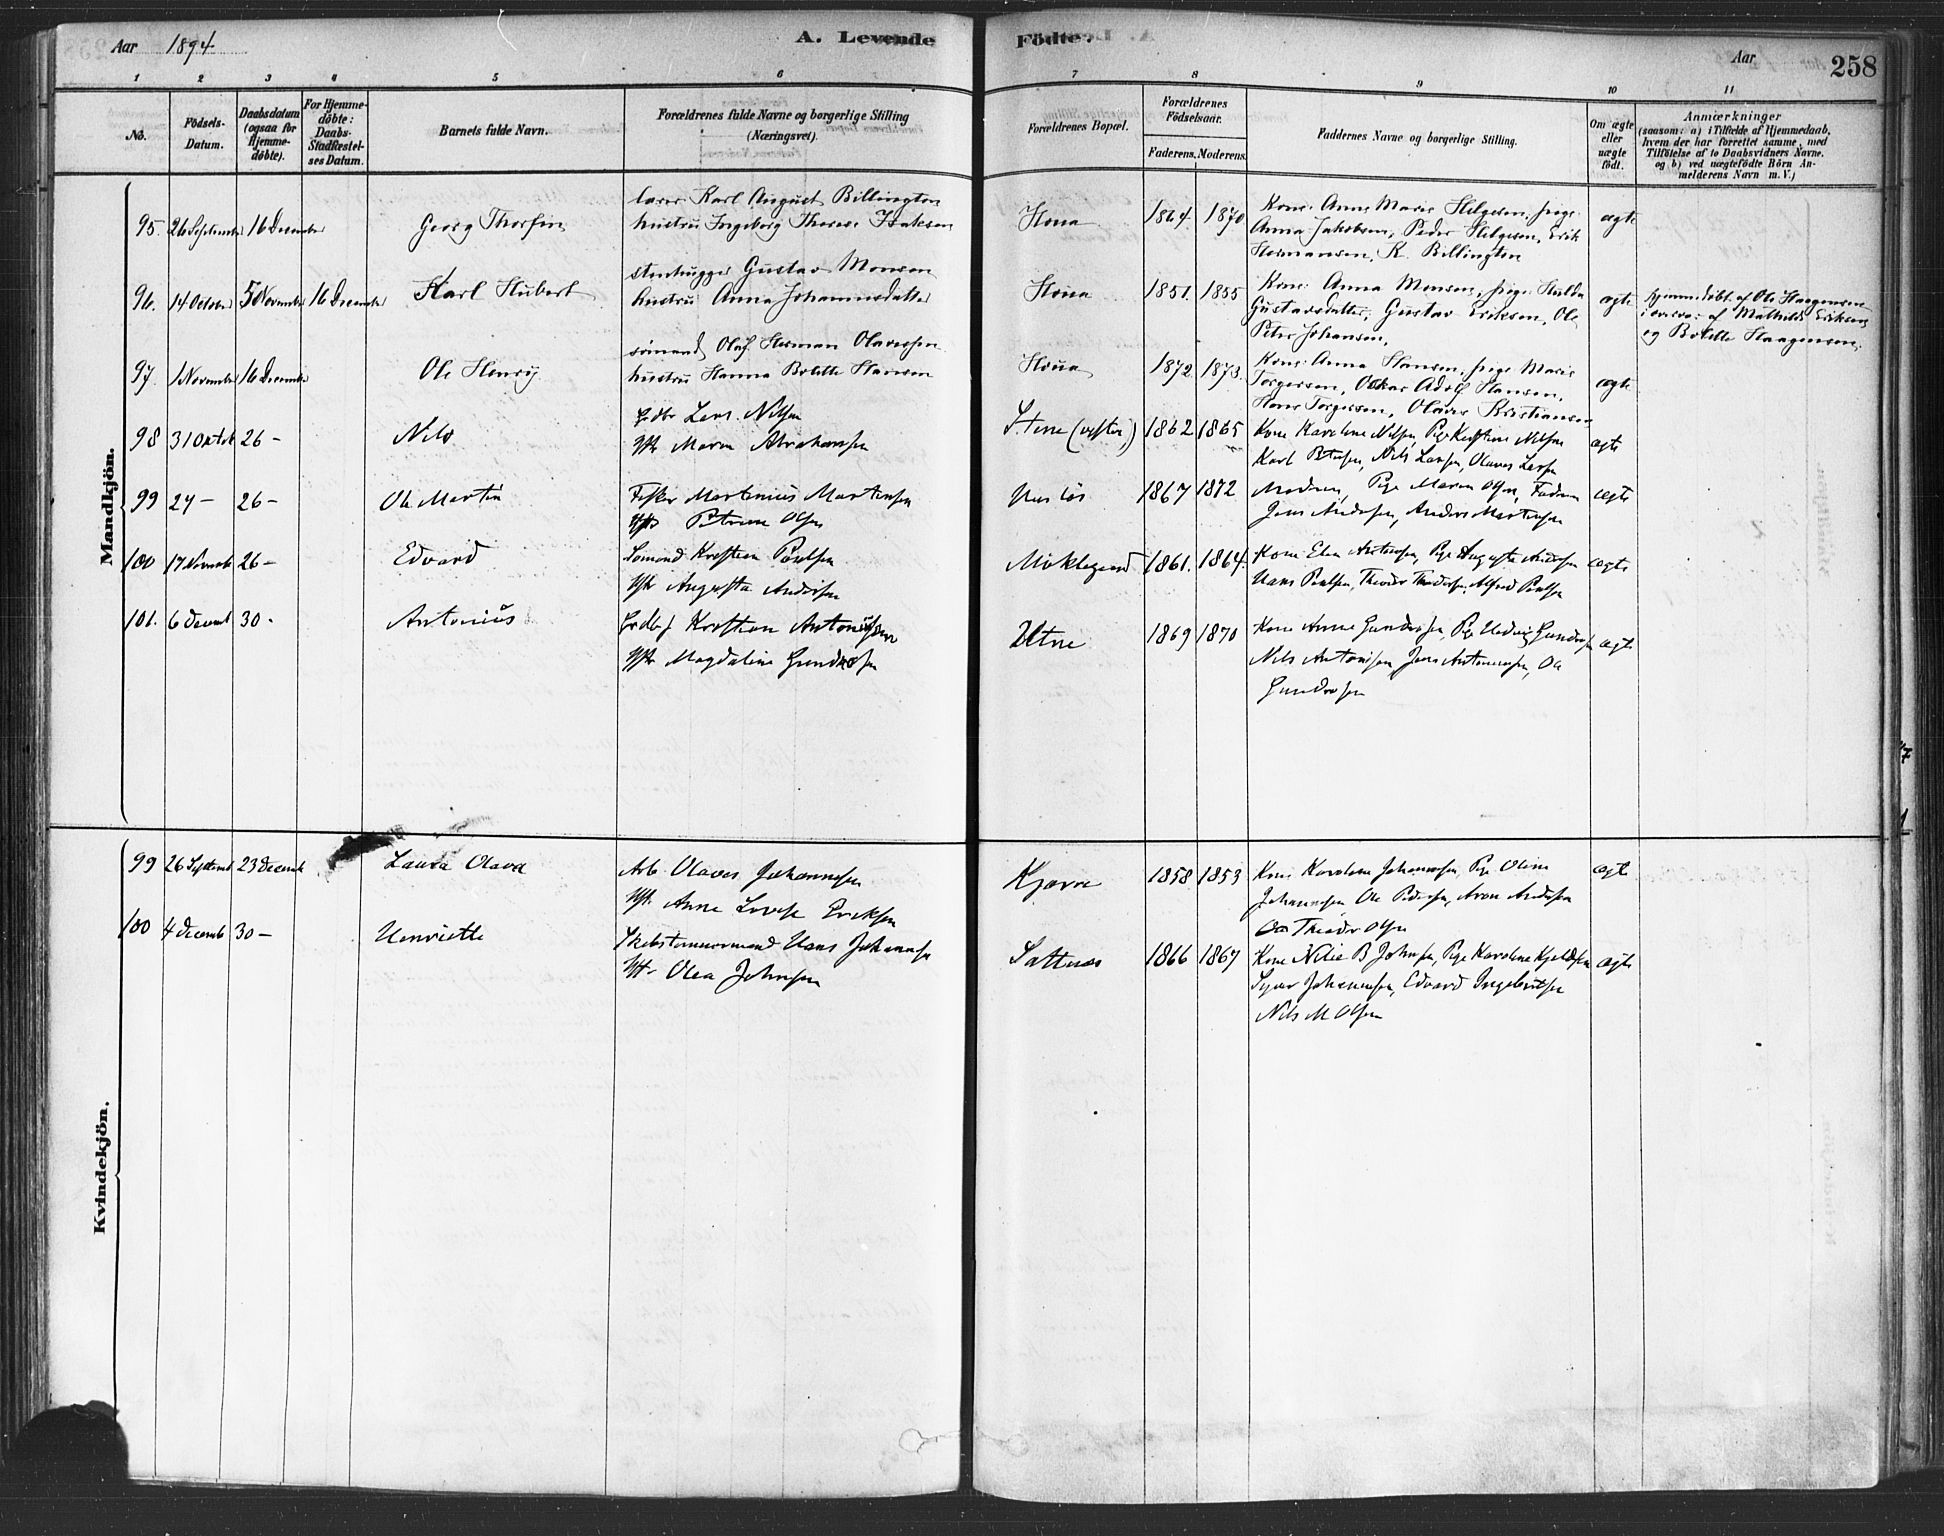 Aar 1894
A. Levende
Födte.
Aar
258
1 2 3 4 5 6 7 8 9 10 11
No.
Födsels-
Datum.
Daabsdatum
(ogsaa for
Hjemme-
döbte).
For Hjemme-
döbte:
Daabs-
Stadfæstel-
ses Datum.
Barnets fulde Navn.
Forældrenes fulde Navne og borgerlige Stilling
(Næringsvei).
Forældrenes Bopæl.
Forældrenes
Födselsaar.
Faderens. Moderens.
Faddernes Navne og borgerlige Stilling.
Om ægte
eller
uægte
födt.
Anmærkninger
(saasom: a) i Tilfælde af Hjemmedaab,
hvem der har forrettet samme, med
Tilföielse af to Daabsvidners Navne,
og b) ved uægtefödte Börn An-
melderens Navn m. V.)
Mandkjön.
95. 26 September 16 December Georg Thorfin
Karl August Billington
hustru Ingeborg Isaksen
1864. 1870
Kone: Anne Marie Helgesen, pige
Anna Jakobsen, Peder Helgesen, Erik
Hermansen, K. Billington
ægte
96. 14 October 5 November 16 December Karl Hubert
stenhugger Gustav Monsen
hustru Anna Johannesdatter
1851. 1855
Kone: Anna Monsen, pige: Hulda
Gustavsdatter, Gustav Eriksen, Ole
Peter Johansen,
ægte
hjemmedöbt af Ole Haagensen
i overvær af Mathilde Eriksen
og Bolette Haagensen.
97. 1 November 16 December Ole Henry
sömand Olaf Herman Olavesen
hustru Hanna Bolette Hansen
1872. 1873.
Kone: Anna Hansen, pige Marie
Torgersen, Oskar Adolf Hansen,
Hans Torgersen, Olaves Kristiansen
ægte
98 31 Oktob 26 - Nils
Lars Nilsen
Maren Abrahamsen
Stene (vestre) 1862 1865
Kone Karoline Nilsen, Pige Nilsen
Karl, Nils Larsen, Olaves Larsen
ægte
99 24 - 26 - Ole Martin
Fisker Martinius Martinsen
Petrine Olsen
1867 1872
Maren Olsen,
Jens Andersen, Anders Martinsen
ægte
100 17 Novemb 26 - Edvard
Sömand Kristian Paulsen
Augusta Andersen
Möklegaard 1861. 1864.
Kone Elen, Pige Augusta Andersen
Hans Paulsen, Alfred Paulsen
ægte
101. 6 Decemb 30 - Antonius
Kristian Antonisen
Magdaline Gundersen
1869 1870
Kone Anne Gundersen, Pige Hedvig Gundersen
Nils Antonisen, Jens Antonisen, Ole
Gundersen
ægte
Kvindekjön.
99 26 Septemb 23 Decemb Laura Olava
Arb. Olaves Johannesen
Anne Lovise Eriksen
Kjærre 1858 1853
Kone Karoline Johannesen, Pige Oline
Johannesen Ole Pedersen, Aron Andersen
Theodor Olsen
ægt
100 4 Decemb 30 - Henriette
Skibstømmermand Hans Johannesen
Olea Johnsen
1866 1867
Kone B Johnsen, Pige Karoline Kjeldsen
Johannesen, Edvard Ingebretsen
Nils M Olsen
ægte